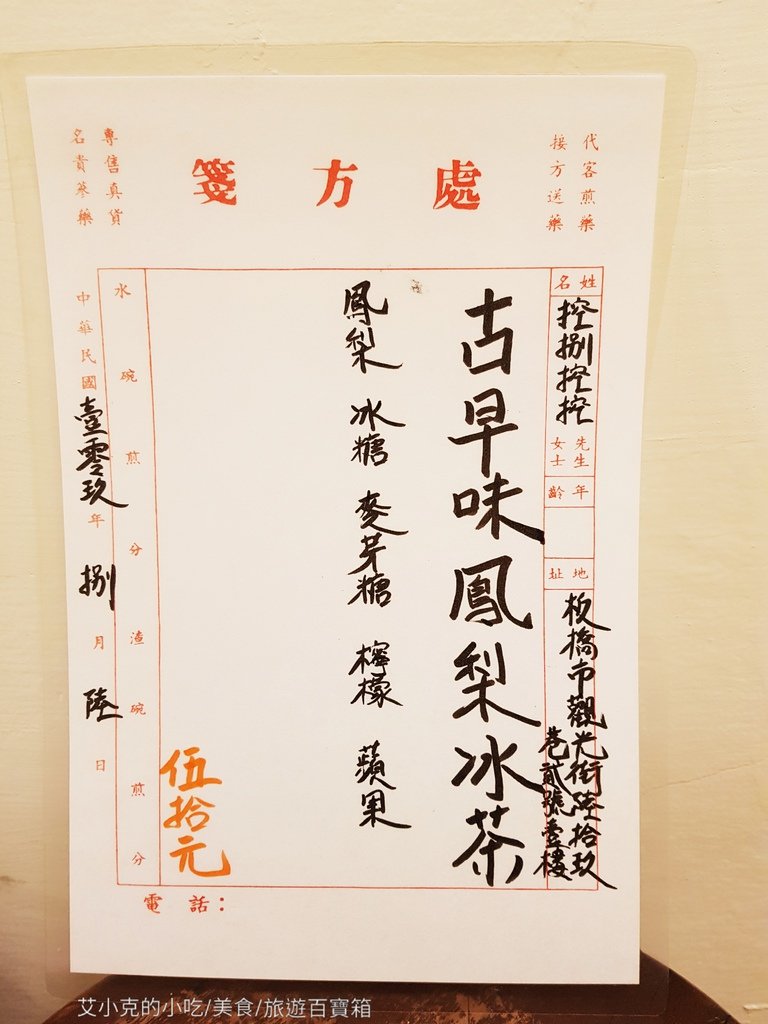 代客煎藥
接方送藥
處方箋
專售真貨
名貴蔘藥
姓名
控捌控控
先生
女士
年齡
地址
板橋市觀光街陸拾玖
巷貳號壹樓
古早味鳳梨冰茶
鳳梨 冰糖 麥芽糖 檸檬 蘋果
伍拾元
水碗煎分渣碗煎分
中華民國壹零玖年捌月陸日
電話：
艾小克的小吃/美食/旅遊百寶箱